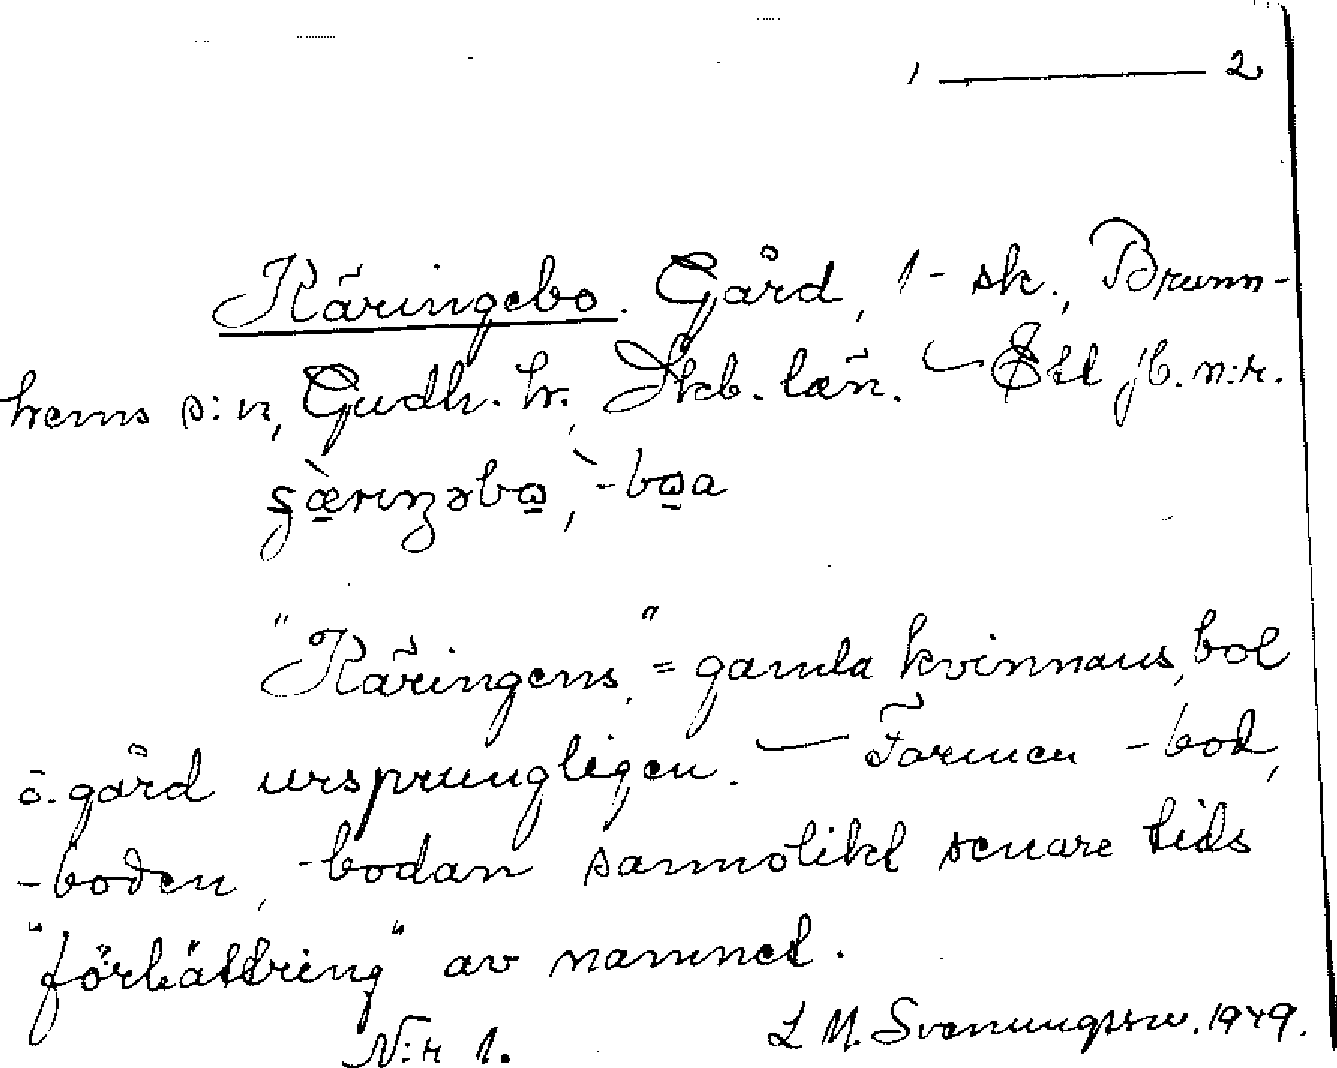 1 ——— 2
Käringebo. Gård, 1-sk., Brunn-
hems s:n, Gudh. hr. Skb. län. — Ett jb. n:r.
ʂæ̀rıŋəbo, -boa
"Käringens," = gamla kvinnans, bol
o. gård ursprungligen. — Formen -bod,
-boden, -bodan sannolikt senare tids
"förbättring" av namnet.
N:r 1. L M. Svenungsson. 1949.